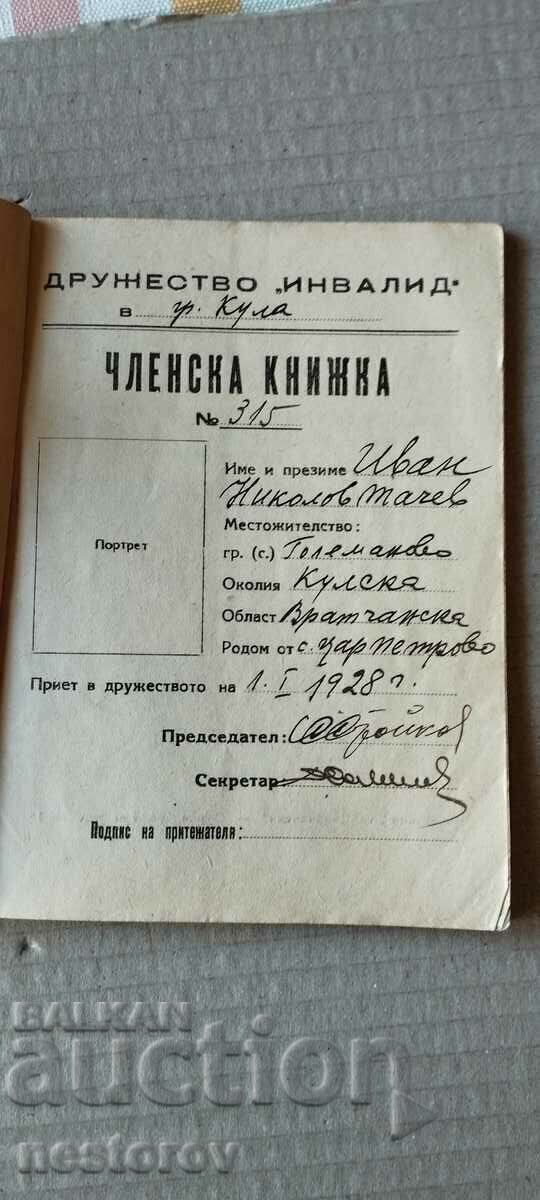 ДРУЖЕСТВО „ИНВАЛИД"
в гр. Кула
ЧЛЕНСКА КНИЖКА
№ 315
Портрет
Име и презиме Иван
Николов Тачев
Местожителство:
гр. (с.) Големаново
Околия Кулска
Област Вратчанска
Родом от с. Цар Петрово
Приет в дружеството на 1. I 1928 г.
Председател:
Секретар
Подпис на притежателя:
BALKAN
auction
nestorov